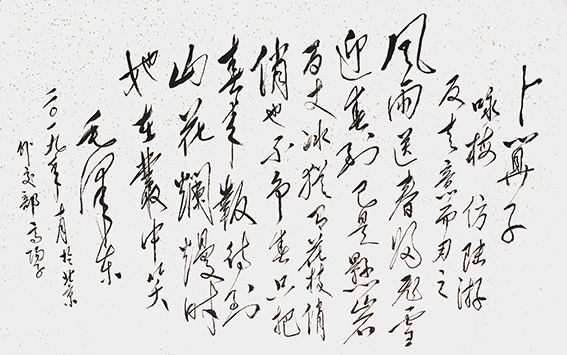 卜算子
咏梅 仿陆游
反其意而用之
风雨送春归飞雪
迎春到已是悬岩
百丈冰犹有花枝俏
俏也不争春只把
春来報待到
山花爛熳时
她在叢中笑
毛泽东
二〇一九年十月於北京
外交部